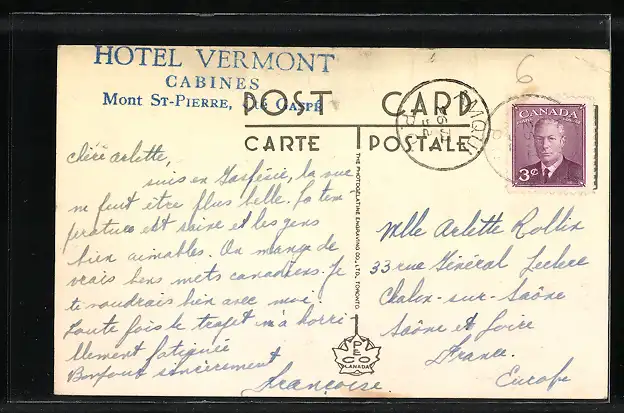 HOTEL VERMONT
CABINES
Mont St-Pierre, GASPÉ
POST CARD
CARTE POSTALE
CANADA
3¢
6
Chère Arlette,
suis en Gaspésie, la vue
ne peut être plus belle. La tem
pérature est saine et les gens
bien aimables. On mange de
vrais bons mets canadiens. Je
te voudrais bien avec moi.
Toute fois le trajet m'a horri
blement fatiguée
Bonjour sincèrement
Françoise.
Mlle Arlette Rollin
33 rue Général Leclerc
Chalon-sur-Saône
Saône et Loire
France.
Europe
THE PHOTOGELATINE ENGRAVING CO., LTD. TORONTO
PECO
CANADA